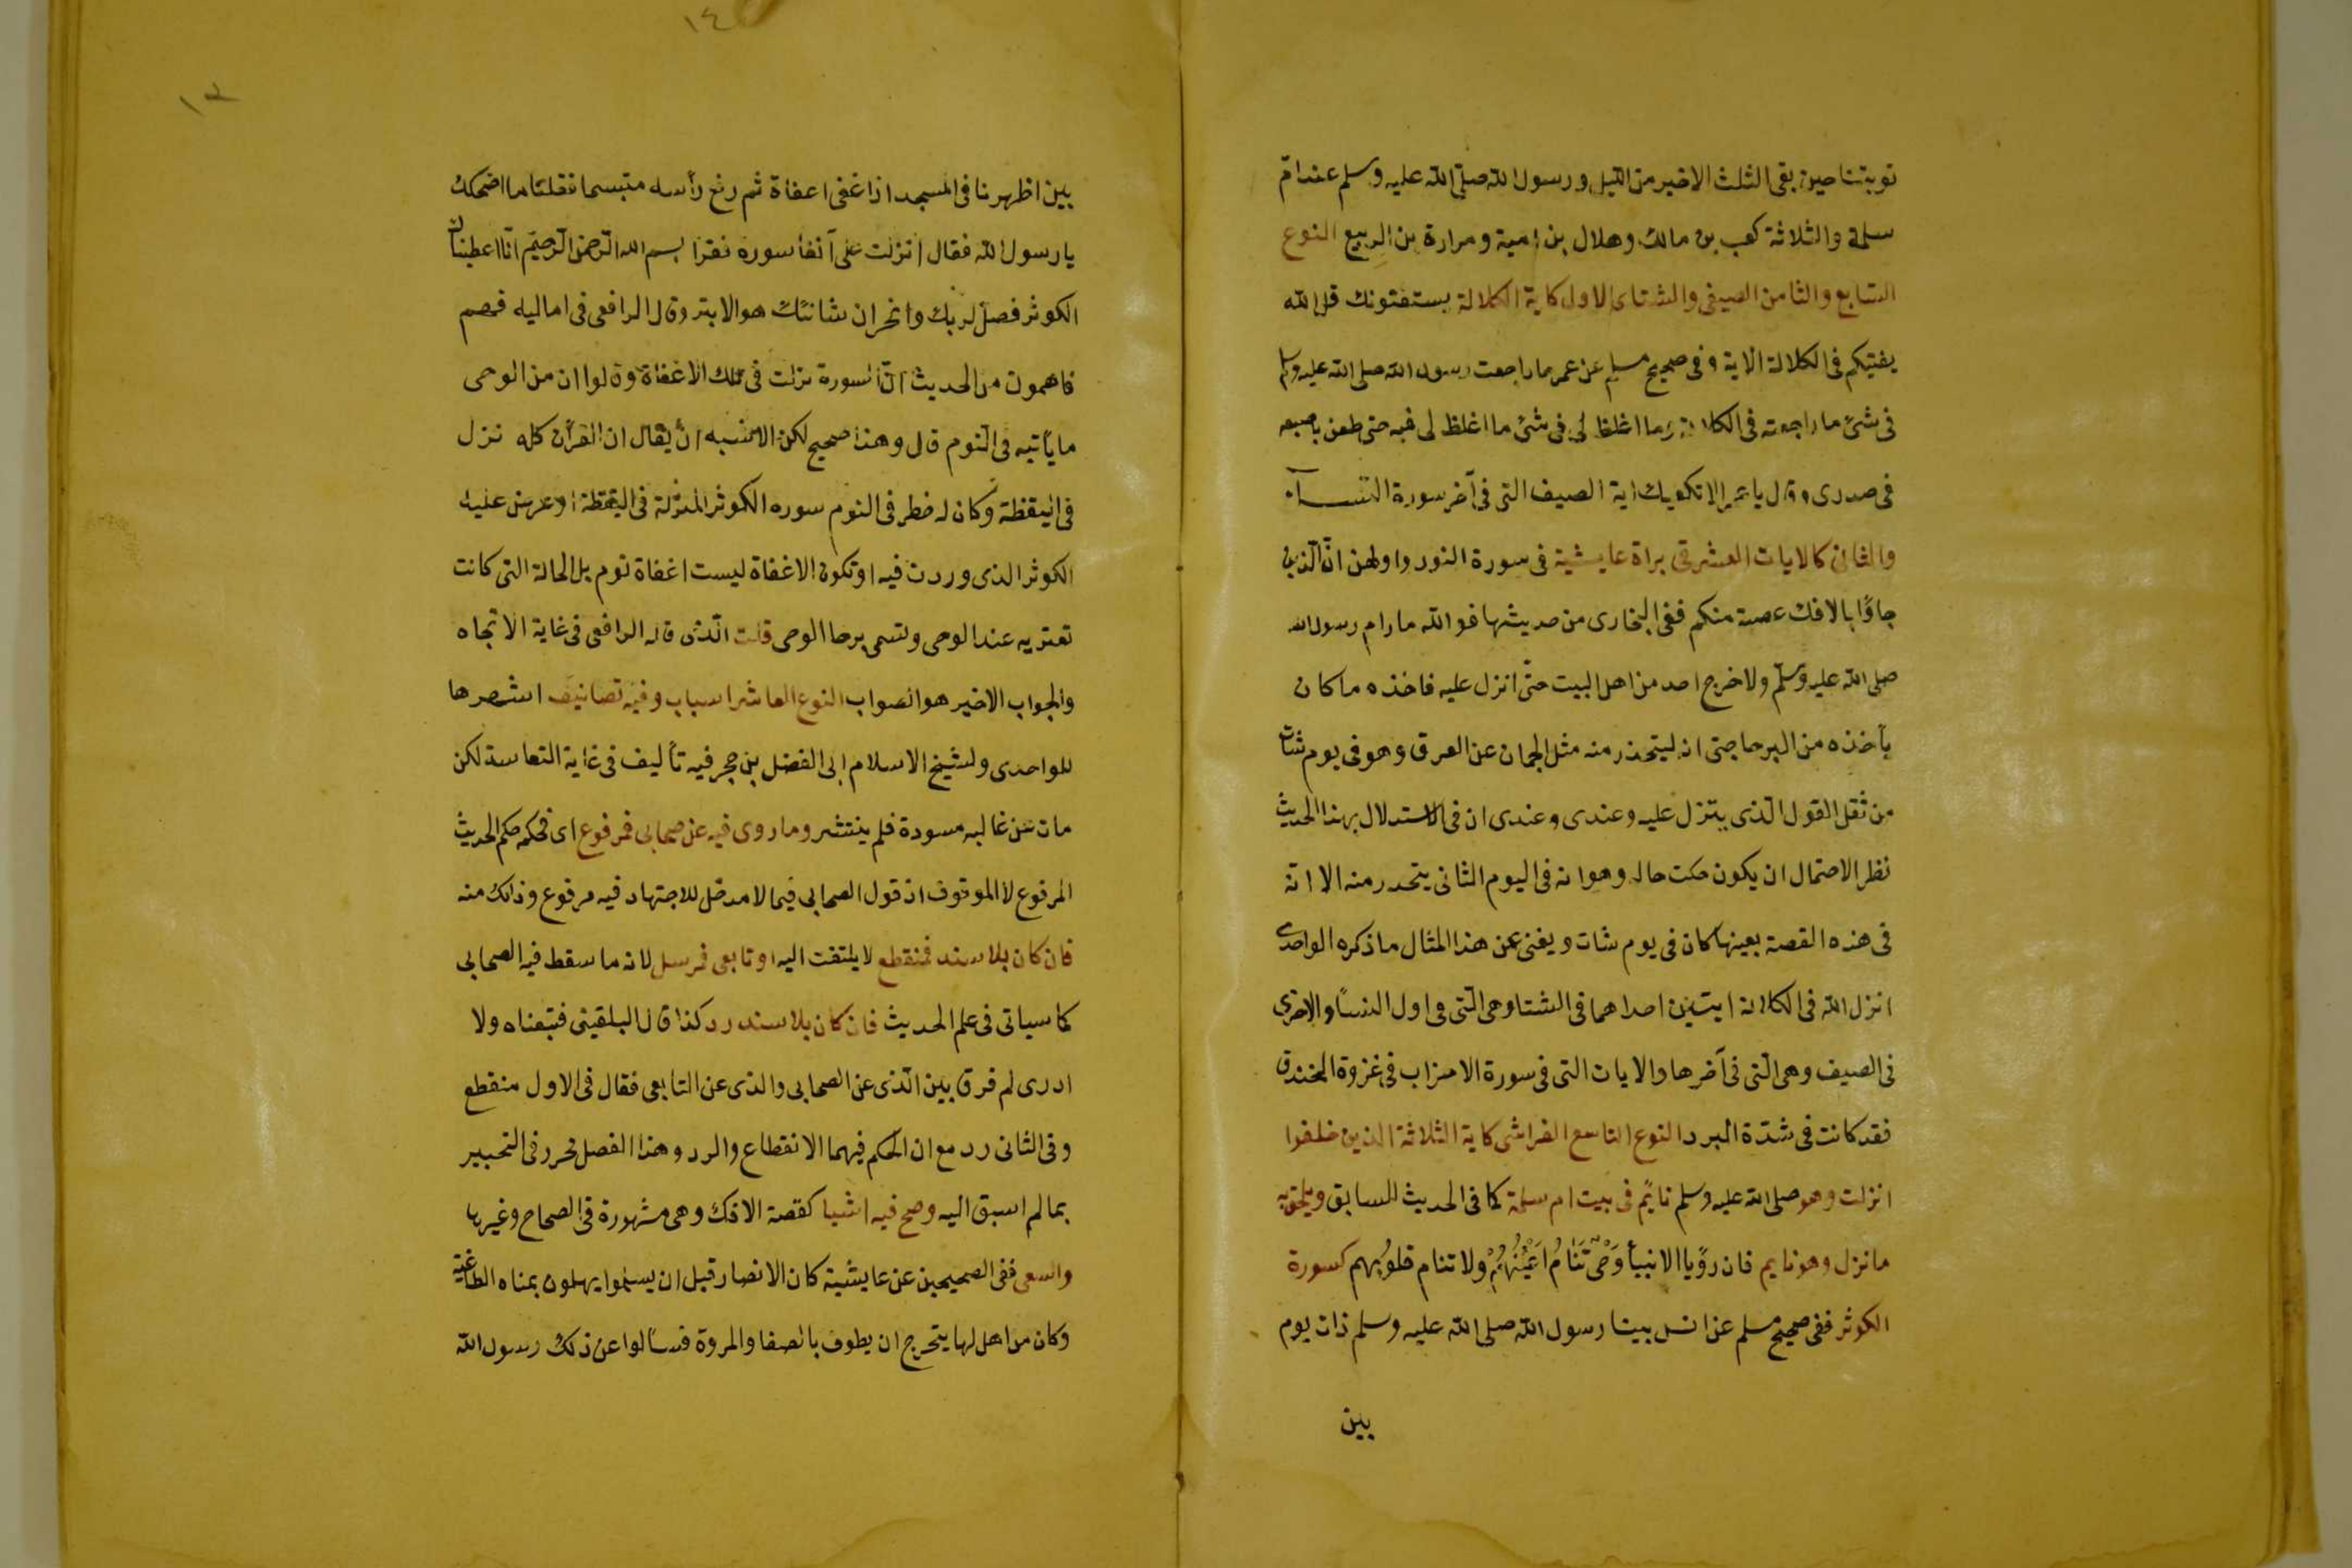 توبتنا حين بقى الثلث الاخير من الليل ورسول الله صلى الله عليه وسلم عند ام
سلمة والثلاثة كعب بن مالك وهلال بن امية ومرارة بن الربيع النوع
السابع والثامن الصيفى والشتاى الاول كاية الكلالة يستفتونك قل الله
يفتيكم فى الكلالة الاية وفى صحيح مسلم عن عمر ما راجعت رسول الله صلى الله عليه وسلم
فى شئ ما راجعته فى الكلالة وما اغلظ لى فى شئ ما اغلظ لى فيه حتى طعن باصبعه
فى صدرى وقال يا عمر الا تكفيك اية الصيف التى فى آخر سورة النسآء
والثانى كالايات العشر فى براة عايشية فى سورة النور واولهن ان الذين
جاؤا بالافك عصبة منكم ففى البخارى من حديثها فو الله ما رام رسول الله
صلى الله عليه وسلم ولا خرج احد من اهل البيت حتى انزل عليه فاخذه ما كان
يأخذه من البرحا حتى انه ليتحدر منه مثل الجمان عن العرق وهو فى يوم شات
من ثقل القول الذى ينزل عليه وعندى وعندى ان فى الاستدلال بهذا الحديث
نظر الاحتمال ان يكون حكت حاله وهو انه فى اليوم الثانى يتحدر منه الا انه
فى هذه القصة بعينها كان فى يوم شات ويغنى عن هذا المثال ما ذكره الواحدى
انزل الله فى الكلالة ايتين احداهما فى الشتا وهى التى فى اول النسأ والاخرى
فى الصيف وهى التى فى آخرها والايات التى فى سورة الاحزاب فى غزوة الخندق
فقد كانت فى شدّة البرد النوع التاسع الفراشى كاية الثلاثة الذين خلفوا
انزلت وهو صلى الله عليه وسلم نايم فى بيت ام سلمة كما فى الحديث السابق ويلحق به
ما نزل وهو نايم فان رؤيا الانبيأ وَحْىٌ تَنَامُ اَعْيُنُهُمْ ولا تنام قلوُبهم كسورة
الكوثر ففى صحيح مسلم عن انس بينا رسول الله صلى الله عليه وسلم ذات يوم
بين
١٤
١٣
بين اظهرنا فى المسجد اذا غفى اعفاة ثم رفع رأسه متبسما فقلنا ما اضحكك
يا رسول الله فقال انزلت على آنفا سورة فقرا بسم الله الرحمن الرحيم انّا اعطيناك
الكوثر فصل لربك وانحر ان شانئك هو الابتر وقال الرافعى فى اماليه فهم
فاهمون من الحديث انّ السورة نزلت فى تلك الاغفاة وقالوا ان من الوحى
ما يأتيه فى النوم قال وهذا صحيح لكن الاشبه ان يقال ان القرآن كله نزل
فى اليقظة وكان له خطر فى النوم سوره الكوثر المنزلة فى اليقظة او عرض عليه
الكوثر الذى وردت فيه او تكون الاغفاة ليست اغفاة نوم بل الحالة التى كانت
تعتريه عند الوحى وتسمى برحا الوحى قلت الّذى قاله الرافعى فى غاية الاتجاه
والجواب الاخير هو الصواب النوع العاشر اسباب وفيه تصانيف اشهرها
للواحدى ولشيخ الاسلام ابى الفضل بن حجر فيه تأليف فى غاية النفاسة لكن
مات عن غالبه مسودة فلم ينتشر وما روى فيه عن صحابى فمرفوع اى فحكمه حكم الحديث
المرفوع لا الموقوف اذ قول الصحابى فيما لا مدخل للاجتهاد فيه مرفوع وذلك منه
فان كان بلا سند فمنقطع لا يلتفت اليه او تابعى فمرسل لانه ما سقط فيه الصحابى
كما سياتى فى علم الحديث فان كان بلا سند رد كذا قال البلقينى فتبعناه ولا
ادرى لم فرق بين الّذى عن الصحابى والذى عن التابعى فقال فى الاول منقطع
وفى الثانى رد مع ان الحكم فيهما الانقطاع والرد وهذا الفصل محرر فى التحبير
بما لم اسبق اليه وصح فيه اشيا كقصة الافك وهى مشهورة فى الصحاح وغيرها
والسعى ففى الصحيحين عن عايشية كان الانصار قبل ان يسلموا يهلون بمناه الطاغية
وكان من اهل لها يتحرج ان يطوف بالصفا والمروة فسألوا عن ذلك رسول الله